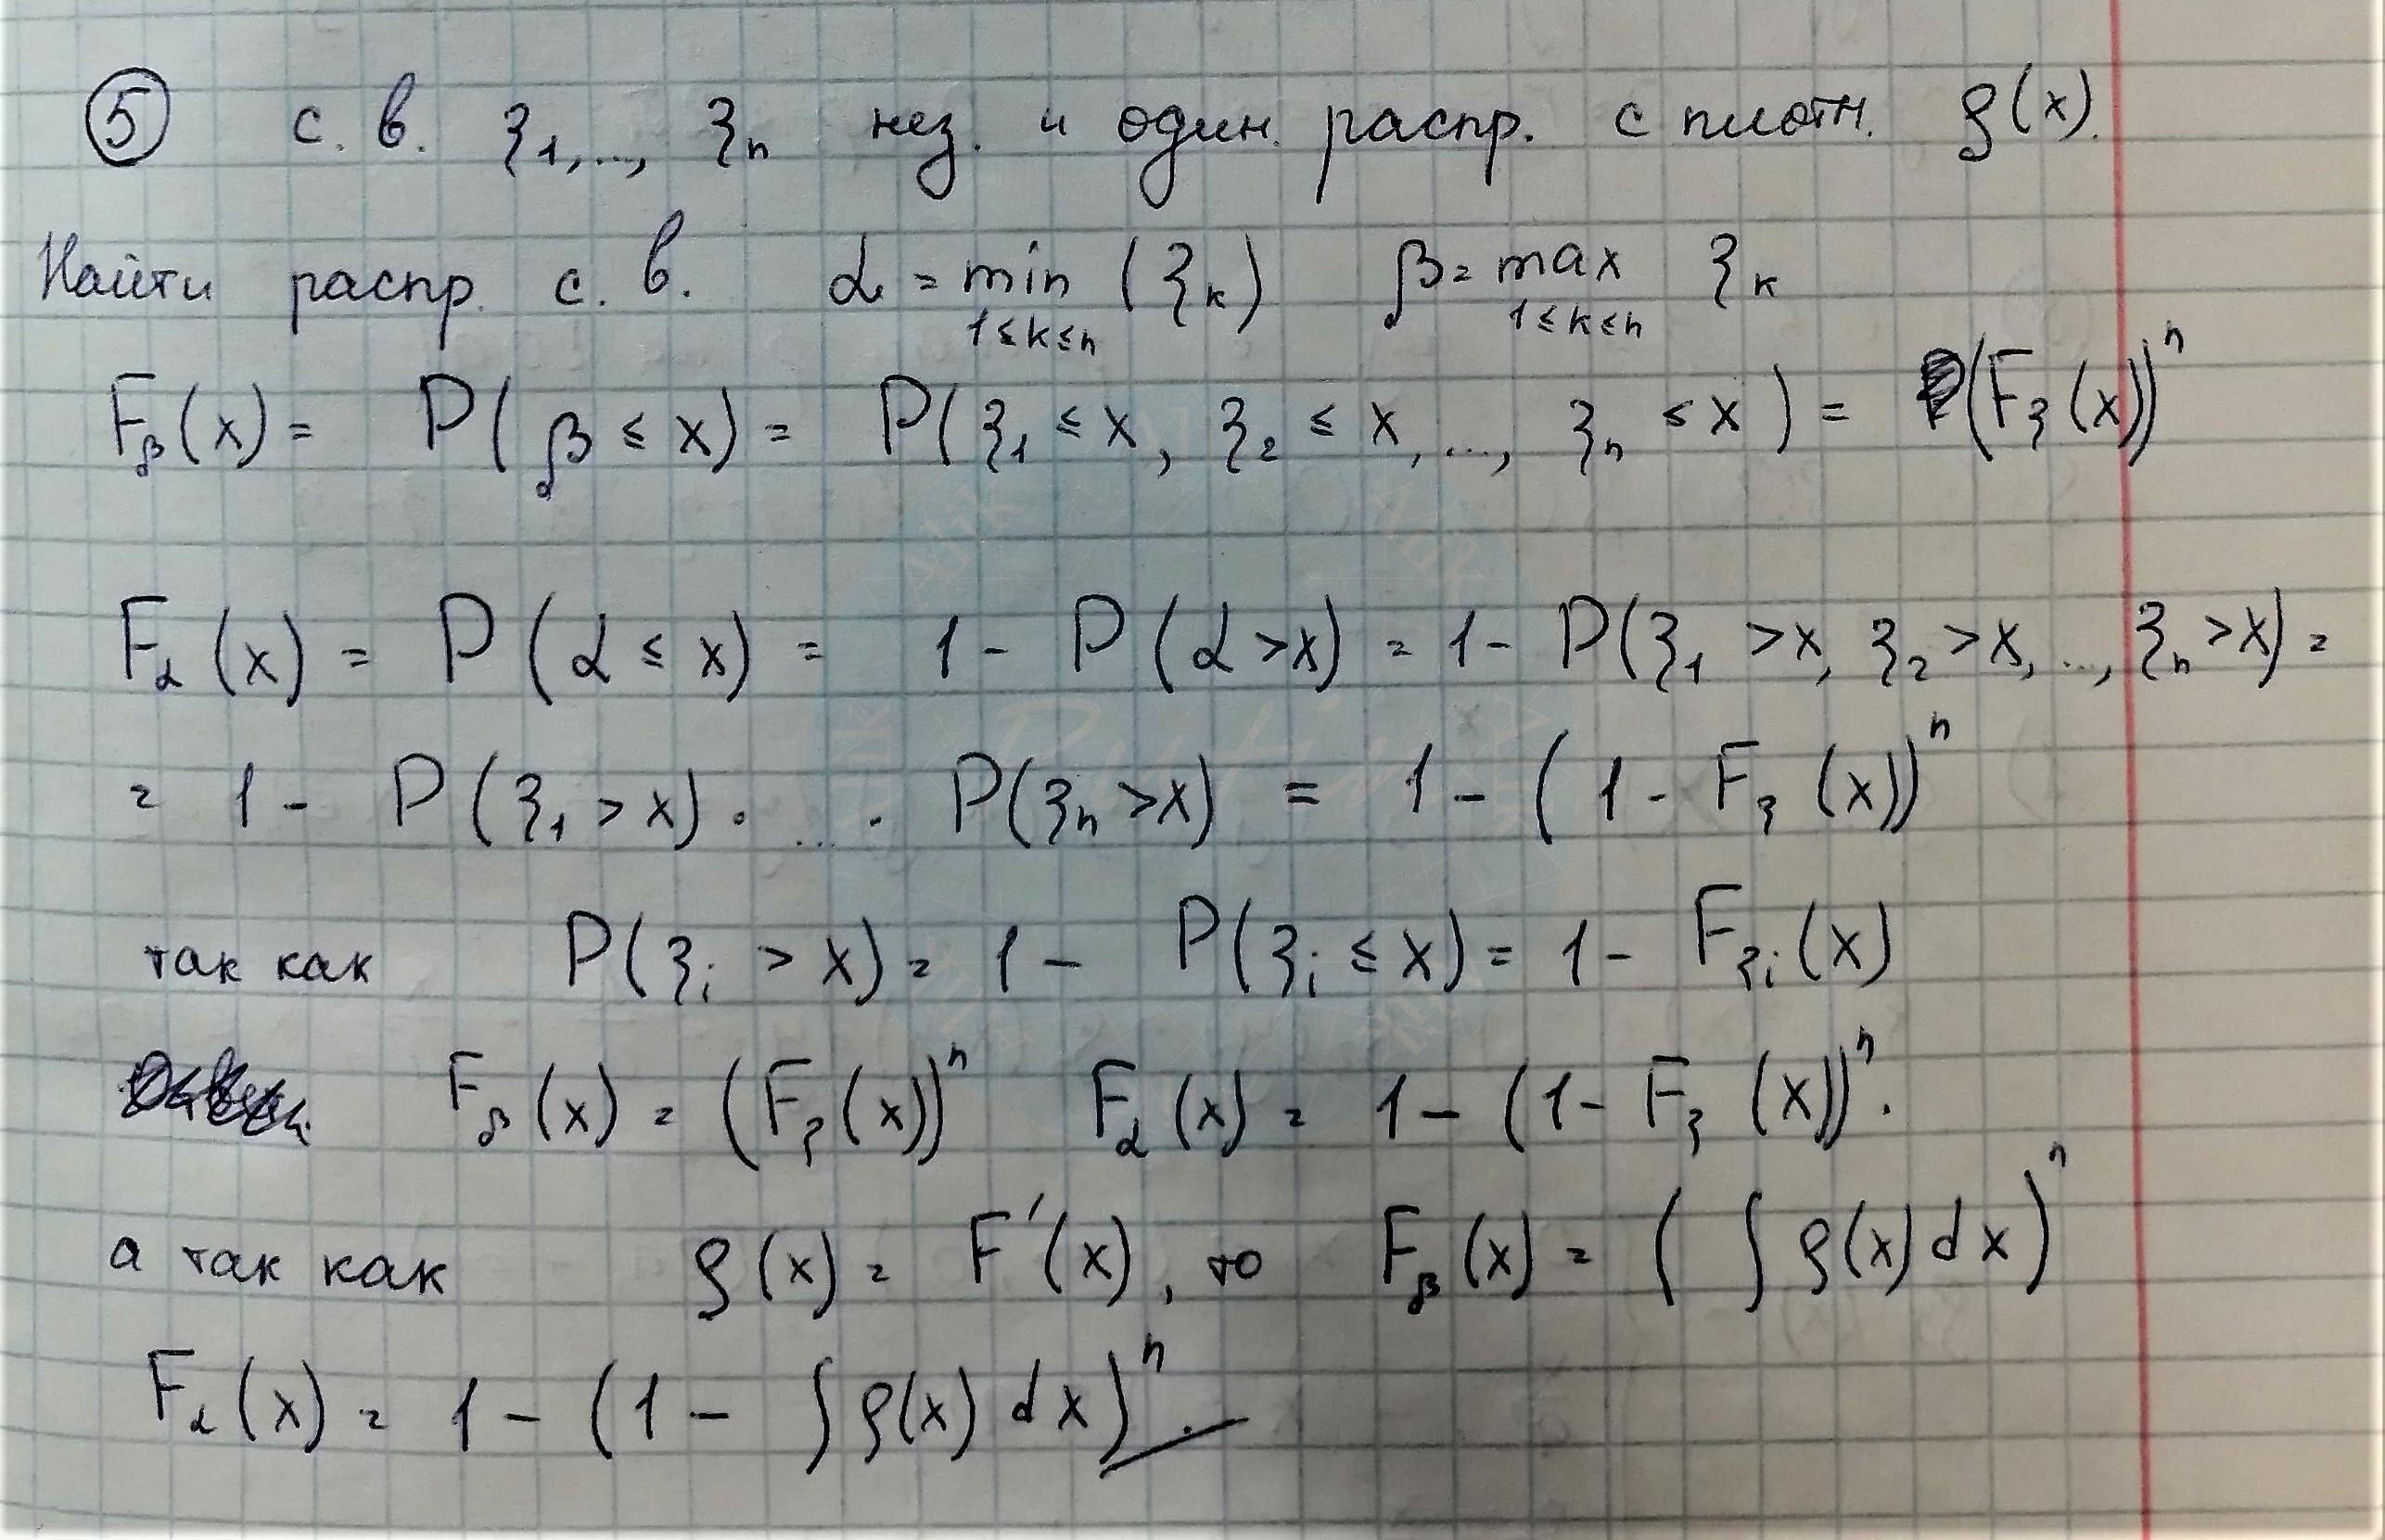 5 с. в. ξ₁,..., ξₙ нез. и один. распр. с плотн. ρ(x).
Найти распр. с. в. α = min (ξₖ) β = max ξₖ
1≤k≤n 1≤k≤n
F_β(x) = P(β ≤ x) = P(ξ₁ ≤ x, ξ₂ ≤ x, ..., ξₙ ≤ x) = (F_ξ(x))ⁿ
F_α(x) = P(α ≤ x) = 1 - P(α > x) = 1 - P(ξ₁ > x, ξ₂ > x, ..., ξₙ > x) =
= 1 - P(ξ₁ > x) · ... · P(ξₙ > x) = 1 - (1 - F_ξ(x))ⁿ
так как P(ξᵢ > x) = 1 - P(ξᵢ ≤ x) = 1 - F_ξᵢ(x)
F_β(x) = (F_ξ(x))ⁿ F_α(x) = 1 - (1 - F_ξ(x))ⁿ.
а так как ρ(x) = F'(x), то F_β(x) = (∫ρ(x)dx)ⁿ
F_α(x) = 1 - (1 - ∫ρ(x)dx)ⁿ.